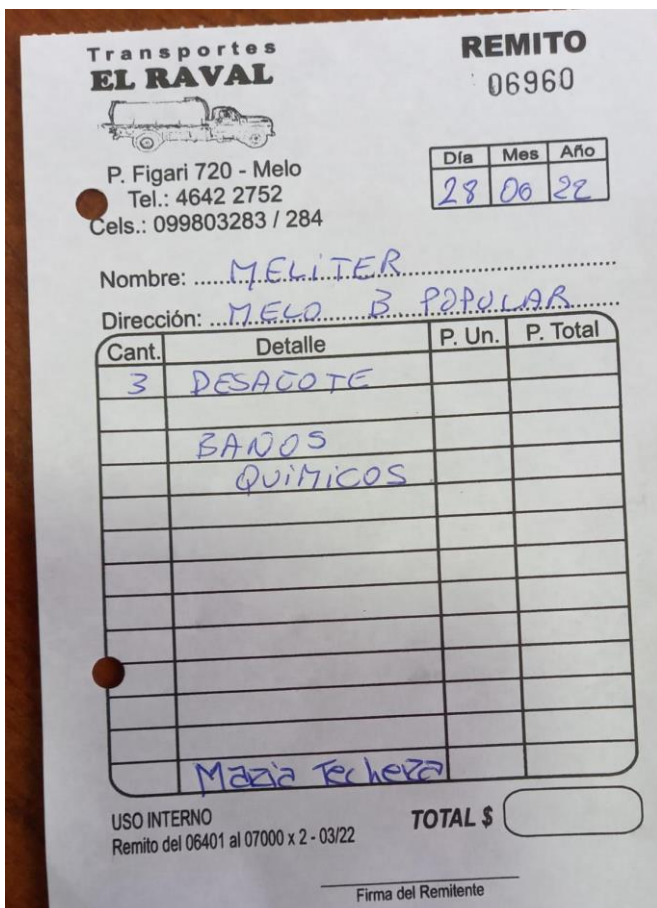 Transportes
EL RAVAL
REMITO
06960
P. Figari 720 - Melo
Tel.: 4642 2752
Cels.: 099803283 / 284
Día Mes Año
28 06 22
Nombre: MELITER
Dirección: MELO B POPULAR
Cant. Detalle P. Un. P. Total
3 DESAGOTE
BAÑOS
QUIMICOS
Maria Techera
USO INTERNO
Remito del 06401 al 07000 x 2 - 03/22
TOTAL $
Firma del Remitente